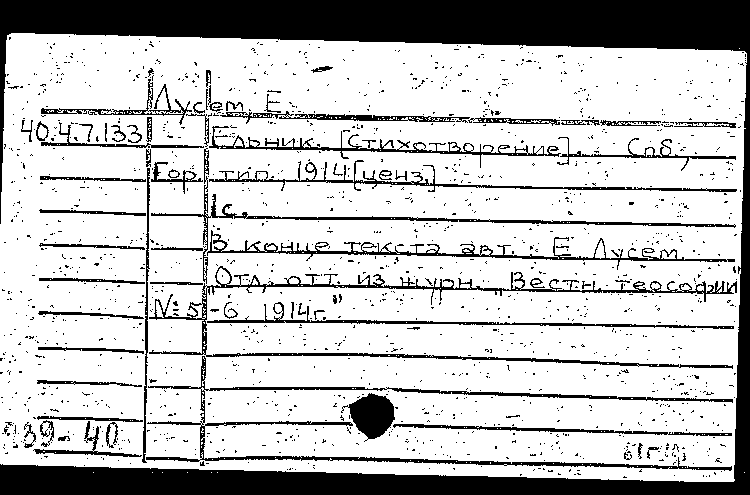 Лусем, Е.
40.4.7.133 Ельник. [Стихотворение]. Спб.,
Гор. тип., 1914 [ценз.]
1с.
В конце текста авт.: Е. Лусем
"Отд. отт. из журн. "Вестн. теософии"
№ 5-6, 1914г."
939-40